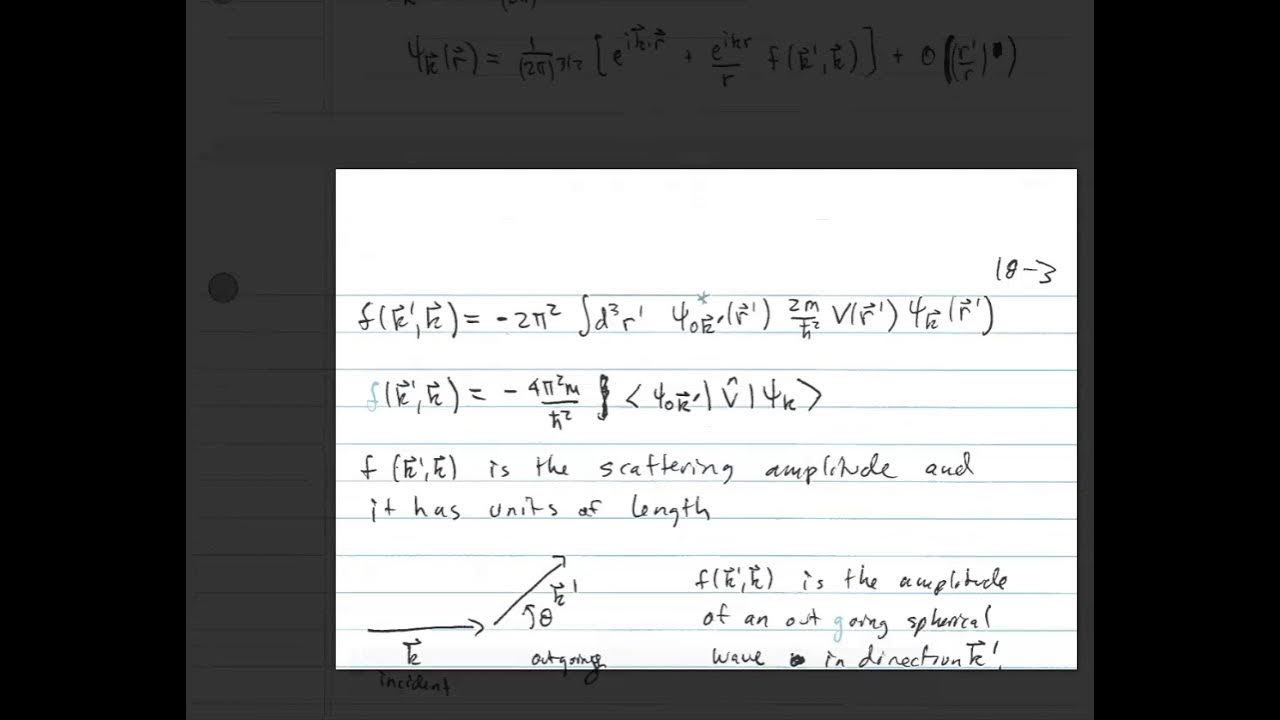 ψ_k⃗(r⃗) = 1/(2π)^3/2 [e^{ik⃗·r⃗} + e^{ikr}/r f(k⃗',k⃗)] + O((r'/r))
18-3
f(k⃗',k⃗) = -2π² ∫d³r' ψ*_{0k⃗'}(r⃗') 2m/ħ² V(r⃗') ψ_k⃗(r⃗')
f(k⃗',k⃗) = - 4π²m/ħ² <ψ_{0k⃗'}| V̂ |ψ_k>
f(k⃗',k⃗) is the scattering amplitude and
it has units of length
k⃗'
θ
k⃗
incident
outgoing
f(k⃗',k⃗) is the amplitude
of an out going spherical
wave in direction k⃗'.